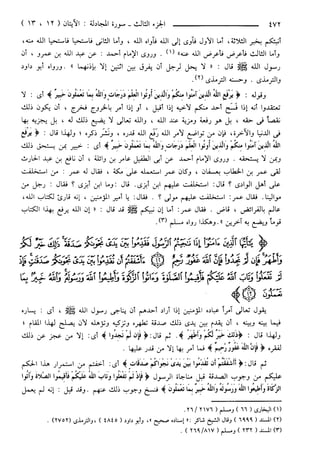 ٤٧٢ الجزء الثالث - سورة المجادلة: الآيتان (١٢ ، ١٣)
أنبئكم بخبر الثلاثة، أما الأول فأوى إلى الله فآواه الله ، وأما الثاني فاستحيا فاستحيا الله منه،
وأما الثالث فأعرض فأعرض الله عنه» (١). وروى الإمام أحمد: عن عبد الله بن عمرو ، أن
رسول الله ﷺ قال : « لا يحل لرجل أن يفرق بين اثنين إلا بإذنهما ». ورواه أبو داود
والترمذي . وحسنه الترمذي (٢).
وقوله : ﴿ يَرْفَعِ اللَّهُ الَّذِينَ آمَنُوا مِنكُمْ وَالَّذِينَ أُوتُوا الْعِلْمَ دَرَجَاتٍ وَاللَّهُ بِمَا تَعْمَلُونَ خَبِيرٌ ﴾ أي : لا
تعتقدوا أنه إذا فَسَح أحد منكم لأخيه إذا أقبل ، أو إذا أمر بالخروج فخرج ، أن يكون ذلك
نقصاً في حقه ، بل هو رفعة ومزية عند الله ، والله تعالى لا يضيع ذلك له ، بل يجزيه بها
في الدنيا والآخرة، فإن من تواضع لأمر الله رفع الله قدره ، ونَشَر ذكره ؛ ولهذا قال : ﴿ يَرْفَعِ
اللَّهُ الَّذِينَ آمَنُوا مِنكُمْ وَالَّذِينَ أُوتُوا الْعِلْمَ دَرَجَاتٍ وَاللَّهُ بِمَا تَعْمَلُونَ خَبِيرٌ ﴾ أي : خبير بمن يستحق ذلك
وبمن لا يستحقه . وروى الإمام أحمد عن أبي الطفيل عامر بن واثلة ، أن نافع بن عبد الحارث
لقى عمر بن الخطاب بعسفان ، وكان عمر استعمله على مكة ، فقال له عمر : من استخلفت
على أهل الوادي ؟ قال: استخلفت عليهم ابن أبزى. قال: وما ابن أبزى ؟ فقال : رجل من
موالينا. فقال عمر: استخلفت عليهم مولى ؟ . فقال: يا أمير المؤمنين ، إنه قارئ لكتاب الله،
عالم بالفرائض ، قاض . فقال عمر: أما إن نبيكم ﷺ قد قال : « إن الله يرفع بهذا الكتاب
قوماً ويضع به آخرين ». وهكذا رواه مسلم (٣).
يقول تعالى آمراً عباده المؤمنين إذا أراد أحدهم أن يناجي رسول الله ﷺ ، أي : يساره
فيما بينه وبينه ، أن يقدم بين يدي ذلك صدقة تطهره وتزكيه وتؤهله لأن يصلح لهذا المقام ؛
ولهذا قال : ﴿ ذَلِكَ خَيْرٌ لَّكُمْ وَأَطْهَرُ ﴾ . ثم قال: ﴿ فَإِن لَّمْ تَجِدُوا ﴾ أي: إلا من عجز عن ذلك
لفقره ﴿ فَإِنَّ اللَّهَ غَفُورٌ رَّحِيمٌ ﴾ فما أمر بها إلا من قدر عليها .
ثم قال: ﴿ أَأَشْفَقْتُمْ أَن تُقَدِّمُوا بَيْنَ يَدَيْ نَجْوَاكُمْ صَدَقَاتٍ ﴾ أي: أخفتم من استمرار هذا الحكم
عليكم من وجوب الصدقة قبل مناجاة الرسول ﴿ فَإِذْ لَمْ تَفْعَلُوا وَتَابَ اللَّهُ عَلَيْكُمْ فَأَقِيمُوا الصَّلَاةَ وَآتُوا
الزَّكَاةَ وَأَطِيعُوا اللَّهَ وَرَسُولَهُ وَاللَّهُ خَبِيرٌ بِمَا تَعْمَلُونَ ﴾ فنسخ وجوب ذلك عنهم . وقد قيل : إنه لم يعمل
(١) البخاري (٦٦) ومسلم (٢١٧٦ / ٢٦) .
(٢) المسند (٦٩٩٩) وقال الشيخ شاكر : « إسناده صحيح »، وأبو داود (٤٨٤٥) ، والترمذي (٢٧٥٢) .
(٣) المسند (٢٣٢) ومسلم (٨١٧ / ٢٦٩) .